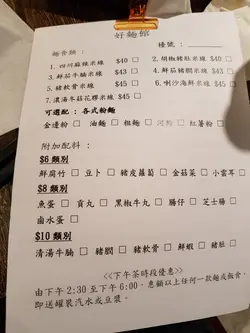 好麵館
麵食類： 檯號：
1. 四川麻辣米線 $40 □ 2. 胡椒豬肚米線
3. 鮮茄牛腩米線 $43 □ 4. 鮮茄豬膶米線 $43 □
5. 豬軟骨米線 $45 □ 6. 喇沙海鮮米線 $45 □
7. 濃湯冬菇花膠米線 $45 □
可選配：各式粉麵
金邊粉 □ 油麵 □ 粗麵 □ 河粉 □ 紅薯粉 □
附加配料：
$6 類別
鮮腐竹 □ 豆卜 □ 豬皮蘿蔔 □ 金菇菜 □ 小雲耳
$8 類別
魚蛋 □ 貢丸 □ 黑椒牛丸 □ 腸仔 □ 芝士腸 □
鹵水蛋 □
$10 類別
清湯牛腩 □ 豬膶 □ 豬軟骨 □ 鮮蝦 □ 豬肚 □
<<下午茶時段優惠>>
由下午 2:30 至下午 6:00，惠顧以上任何一款麵或飯食，
即送罐裝汽水或豆漿。